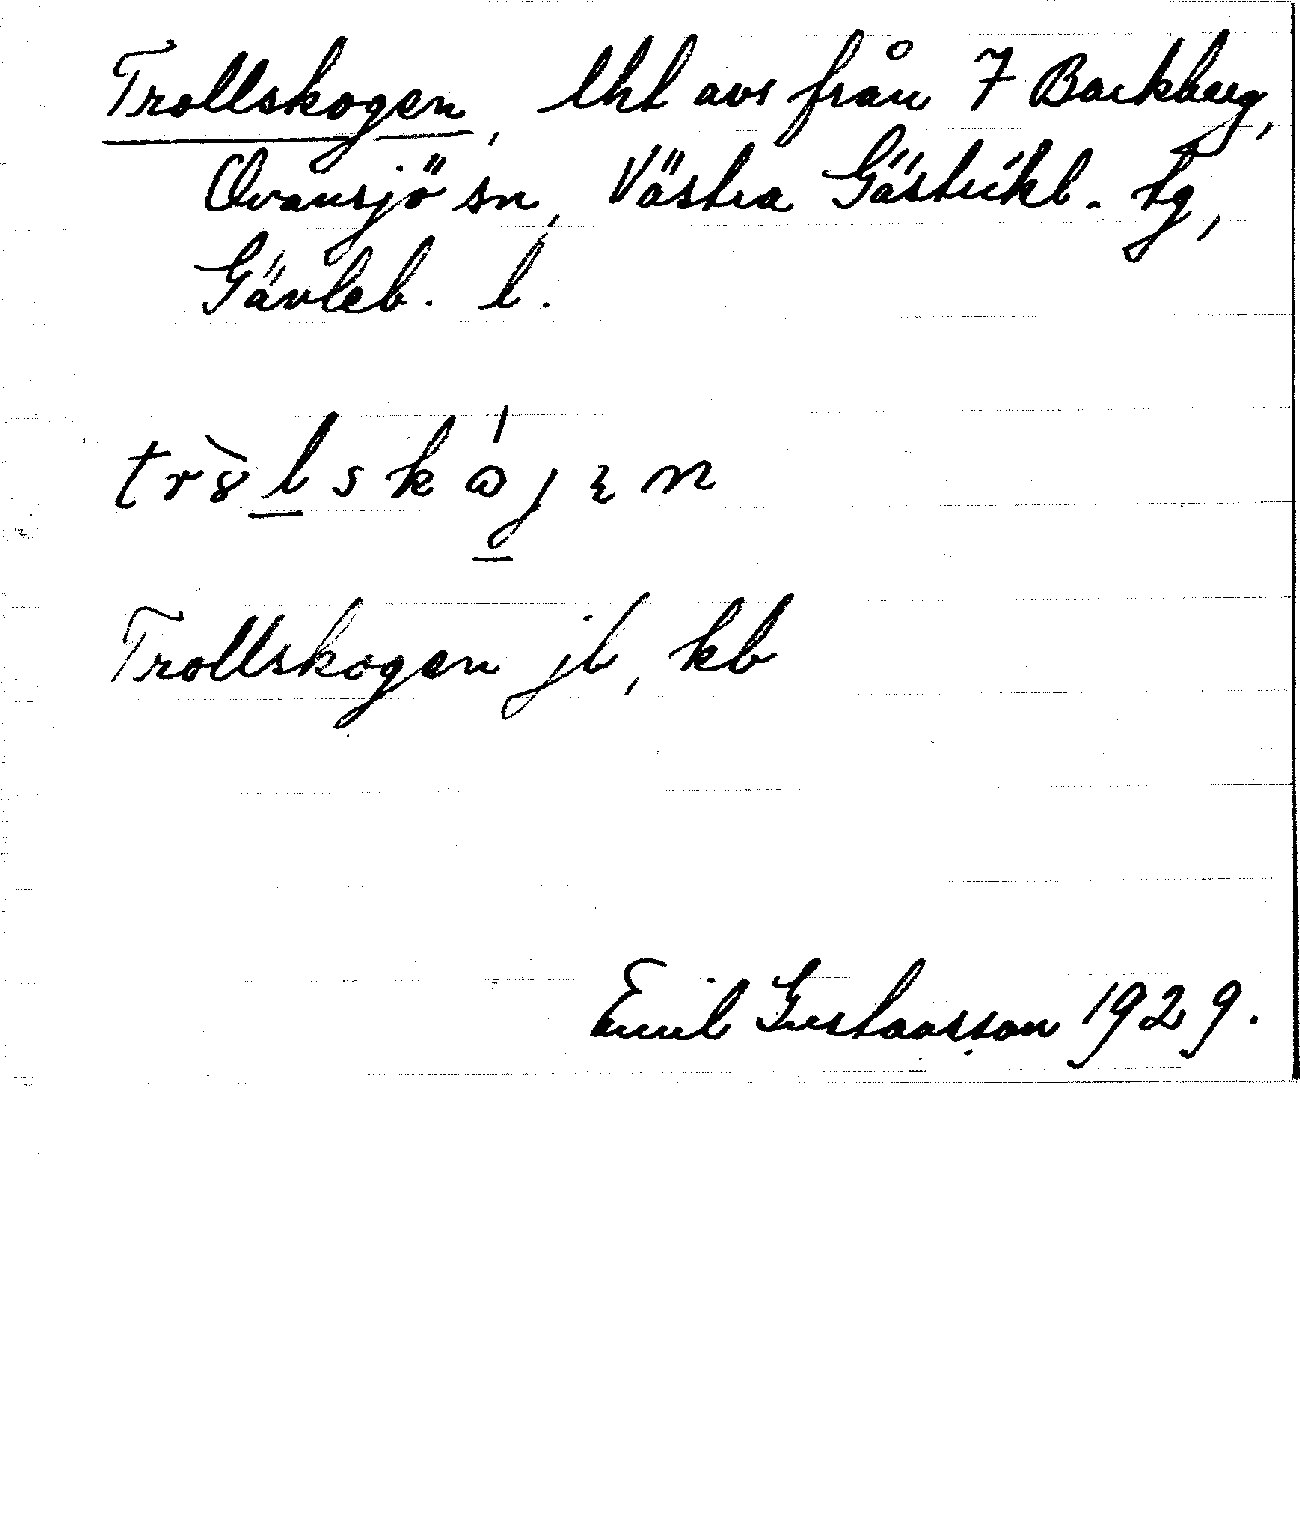 Trollskogen, lht avs från 7 Backberg,
Ovansjö sn, Västra Gästrikl. tg,
Gävleb. l.
Trollskogen jb, kb
Emil Gustavsson 1929.